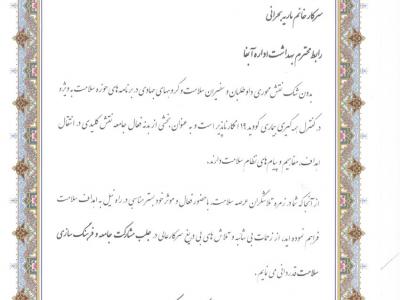 سرکار خانم ماریه بحرانی
رابط محترم بهداشت اداره آبفا
بدون شک نقش محوری داوطلبان و سفیران سلامت و گروههای جهادی در برنامه‌های حوزه سلامت به ویژه
در کنترل همه‌گیری بیماری کووید ۱۹ انکار ناپذیر است و به عنوان بخشی از بدنه فعال جامعه نقش کلیدی در انتقال
اهداف، مفاهیم و پیام های نظام سلامت دارند.
از آنجا که شما در زمره تلاشگران عرصه سلامت، با حضور فعال و موثر خود بستر مناسبی در راه نیل به اهداف سلامت
فراهم نموده اید، از زحمات بی شائبه و تلاش های بی دریغ سرکار عالی در جلب مشارکت جامعه و فرهنگ سازی
سلامت قدردانی می نمایم.